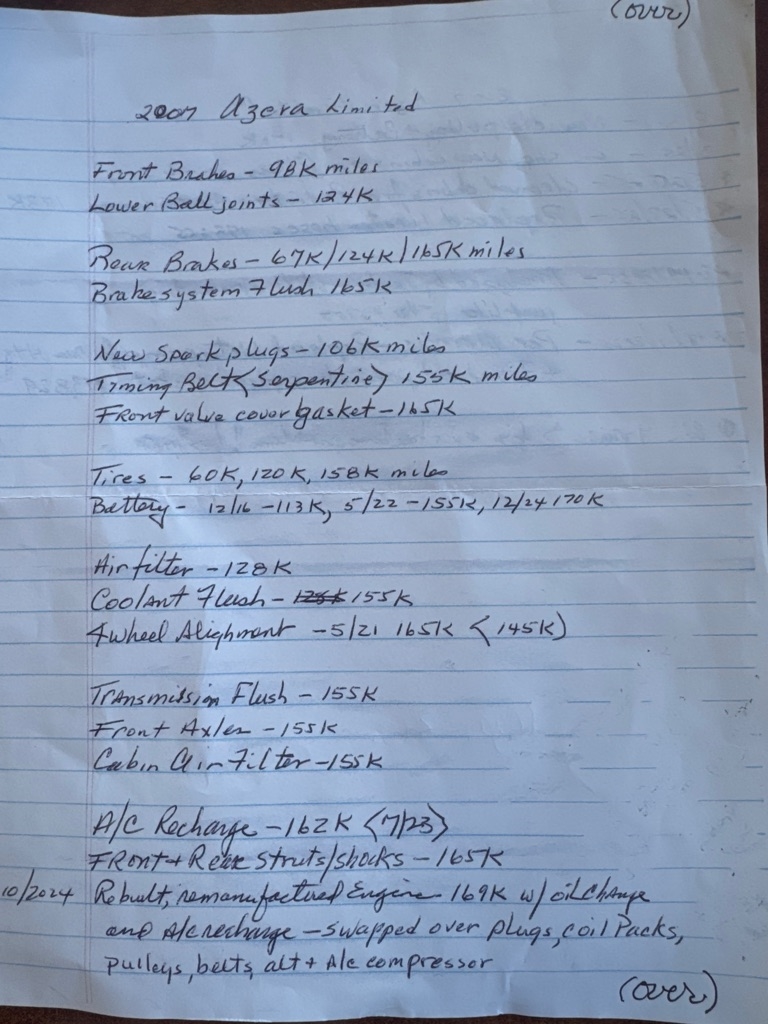 (over)
2007 Azera Limited
Front Brakes - 98K miles
Lower Ball joints - 124K
Rear Brakes - 67K/124K/165K miles
Brake system Flush 165K
New Spark plugs - 106K miles
Timing Belt (Serpentine) 155K miles
Front valve cover gasket - 165K
Tires - 60K, 120K, 158K miles
Battery - 12/16 - 113K, 5/22 - 155K, 12/24 170K
Air filter - 128K
Coolant Flush - 155K
4 wheel Alighment - 5/21 165K (145K)
Transmission Flush - 155K
Front Axles - 155K
Cabin Air Filter - 155K
A/C Recharge - 162K (7/23)
FRont + Rear Struts/shocks - 165K
10/2024 Rebuilt, remanufactured Engine 169K w/ oil Change
and A/c recharge - swapped over plugs, coil Packs,
pulleys, belts, alt + A/c compressor
(over)